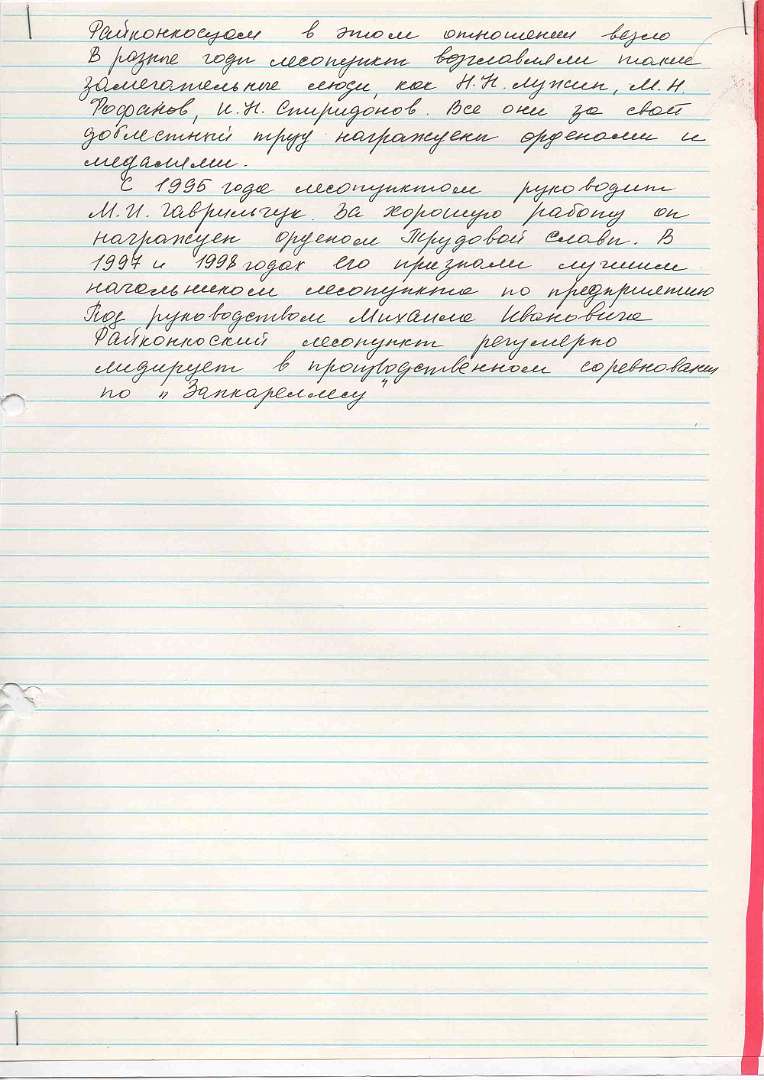 Райконкосцам в этом отношении везло
В разные годы лесопункт возглавляли такие
замечательные люди, как Н.Н. Лужин, М.Н.
Фофанов, И.Н. Спиридонов. Все они за свой
доблестный труд награждены орденами и
медалями.
С 1995 года лесопунктом руководит
М.И. Гаврильчук. За хорошую работу он
награжден орденом Трудовой Славы. В
1997 и 1998 годах его признали лучшим
начальником лесопункта по предприятию
Под руководством Михаила Ивановича
Райконкоский лесопункт регулярно
лидирует в производственном соревновании
по "Запкареллесу"